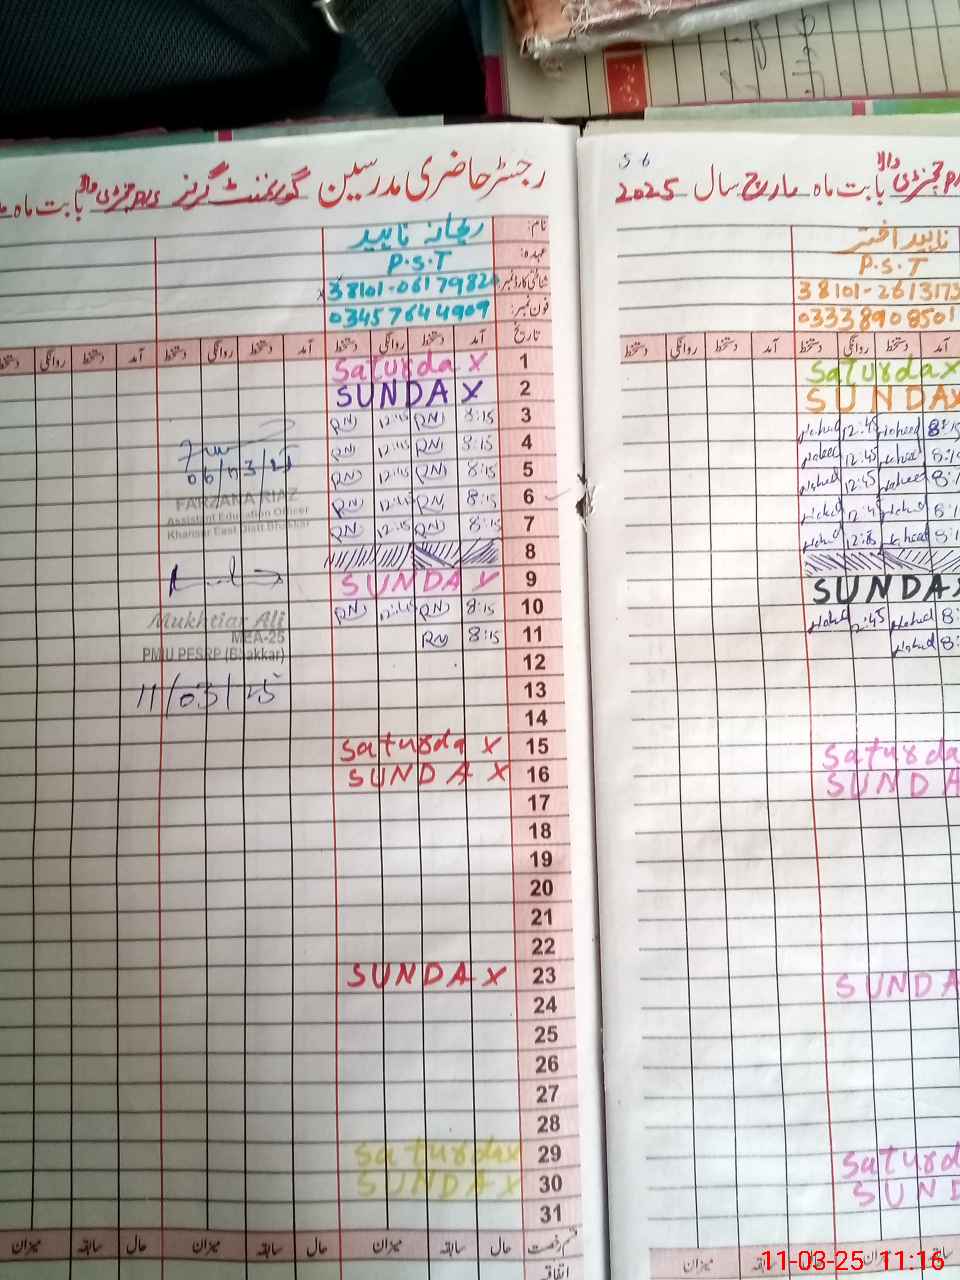 رجسٹر حاضری مدرسین گورنمنٹ گرلز
بابت ماہ
نام:
ریحانہ ناہید
عہدہ:
P.S.T
شناختی کارڈ نمبر:
فون نمبر:
03457644909
تاریخ آمد دستخط روانگی دستخط آمد دستخط روانگی دستخط آمد دستخط روانگی
1 Saturdax
2 SUNDAX
3 8:15 RN 12:45 RN
4 8:15 RN 12:45 RN
5 8:15 RN 12:45 RN
6 8:15 RN 12:45 RN
7 8:15 RN 12:45 RN
8
9 SUNDAY
10 8:15 RN 12:45 RN
11 8:15 RN
12
13
14
15 Saturda X
16 SUNDAX
17
18
19
20
21
22
23 SUNDAX
24
25
26
27
28
29 Saturdax
30 SUNDAX
31
قسم رخصت حال سابقہ میزان حال سابقہ میزان حال سابقہ میزان
اتفاقیہ
06/03/25
FARZANA RIAZ
Assistant Education Officer
Khansar East Distt Bhakkar
Mukhtiar Ali
MEA-25
PMIU PESRP (Bhakkar)
11/03/25
56
بابت ماہ مارچ سال 2025
ناہید اختر
P.S.T
38101-2613173
03338908501
آمد دستخط روانگی دستخط آمد دستخط روانگی دستخط
Saturdax
SUNDAX
Nahed 12:45 Naheed 8:15
Naheed 12:45 Naheed 8:1
Nahed 12:45 Naheed 8:1
Nahed 12:45 Nahed 8:1
Nahed 12:45 Naheed 8:1
SUNDAX
Nahed 12:45 Nahed 8:
Nahed 8:
Saturda
SUNDA
SUNDA
Saturd
SUND
میزان سابقہ حال میزان سابقہ
11-03-25 11:16